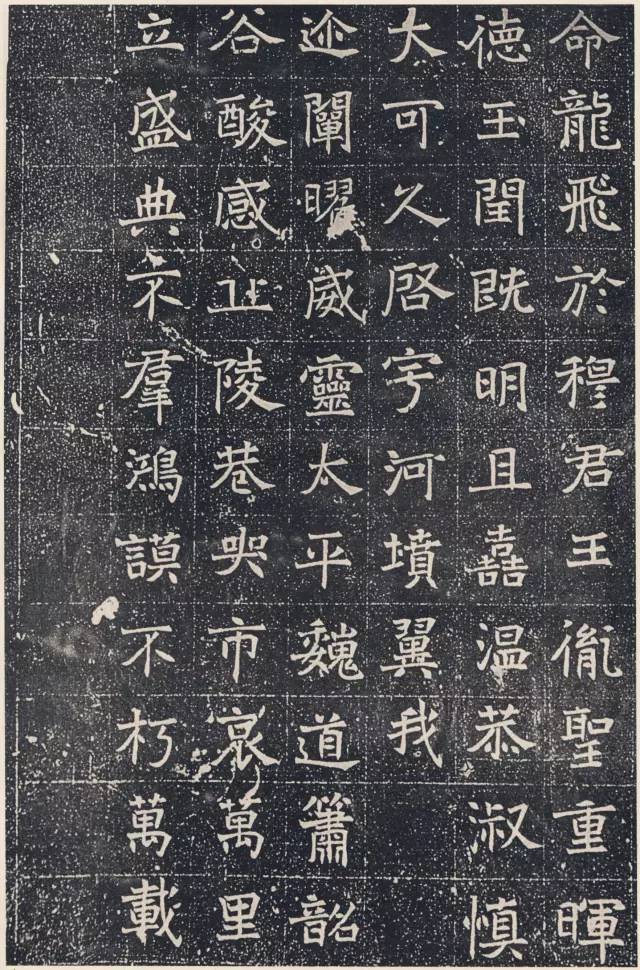 命龍飛於穆君王胤聖重暉
德玉閏既明且嚞温恭淑慎
大可久啓宇河墳翼我
迹闡曜威靈太平魏道簫韶
谷酸感丘陵巷哭市哀萬里
立盛典不羣鴻謨不朽萬載